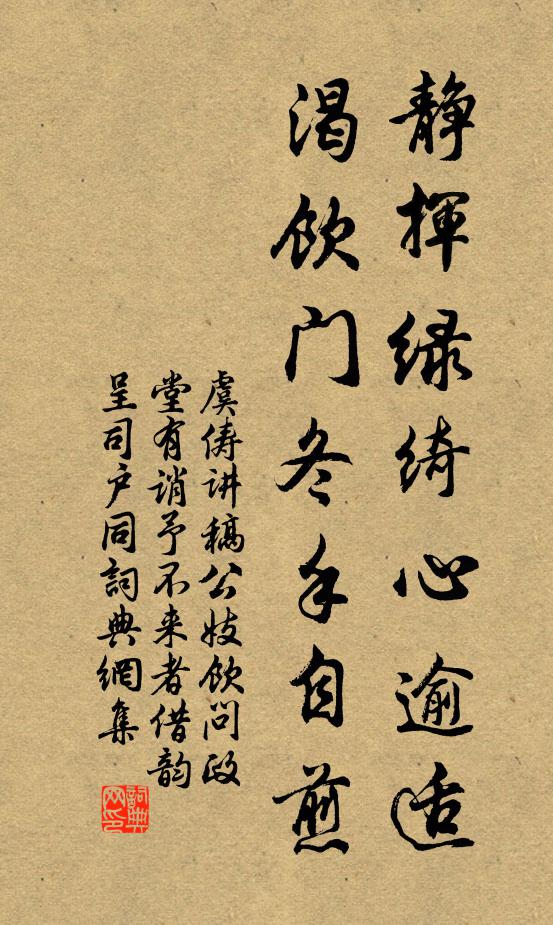 静揮緑綺心逾适
渴飲门冬手自煎
虞俦讲稿公妓飲问政
堂有诮予不来者借韵
呈司户同詞典網集
詞典网印